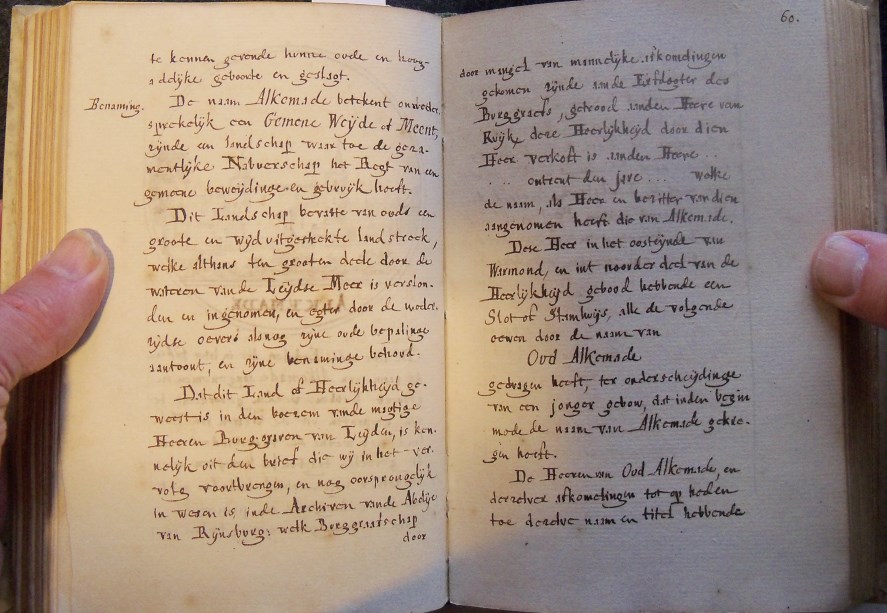 te kennen gevende hunne oude en hoog-
adelijke geboorte en geslagt.
Benaming.
De naam Alkemade betekent onweder-
sprekelijk een Gemene Weijde of Meent,
zijnde en landschap waar toe de geza-
mentlijke Nabuerschap het Regt van een
gemeene beweijdinge en gebruijk heeft.
Dit Landschap bevatte van ouds een
groote en wijd uitgestrekte landstreek,
welke althans ten grooten deele door de
wateren van de Leijdse Meer is verslon-
den en ingenomen, en egter door de weder-
zijdse oevers alsnog zijne oude bepalinge
aantoont, en zijne benaminge behoud.
Dat dit Land of Heerlijkheijd ge-
weest is in den boezem vande magtige
Heeren Burggraven van Leijden, is ken-
nelijk uit den brief die wij in het ver-
volg voortbrengen, en nog oorspronglijk
in wezen is, inde Archiven vande Abdije
van Rijnsburg: welk Burggraafschap
door
60.
door mangel van mannelijke afkomelingen
gekomen zijnde aan de Erfdogter des
Burggraafs, getrood aanden Heere van
Kuijk deze Heerlijkheijd door dien
Heer verkoft is aanden Heere ..
... omtrent den jare ... welke
de naam, als Heer en bezitter van dien
aangenomen heeft die van Alkemade.
Deze Heer in het oosteijnde van
Warmond, en int noorder deel van de
Heerlijkheijd gebood hebbende een
Slot of Stamhuijs, alle de volgende
eewen door de naam van
Oud Alkemade
gedragen heeft, ter onderscheijdinge
van een jonger gebow, dat inden begin
mede de naam van Alkemade gekre-
gen heeft.
De Heeren van Oud Alkemade, en
derzelver afkomelingen tot op heden
toe derzelve naam en titel hebbende